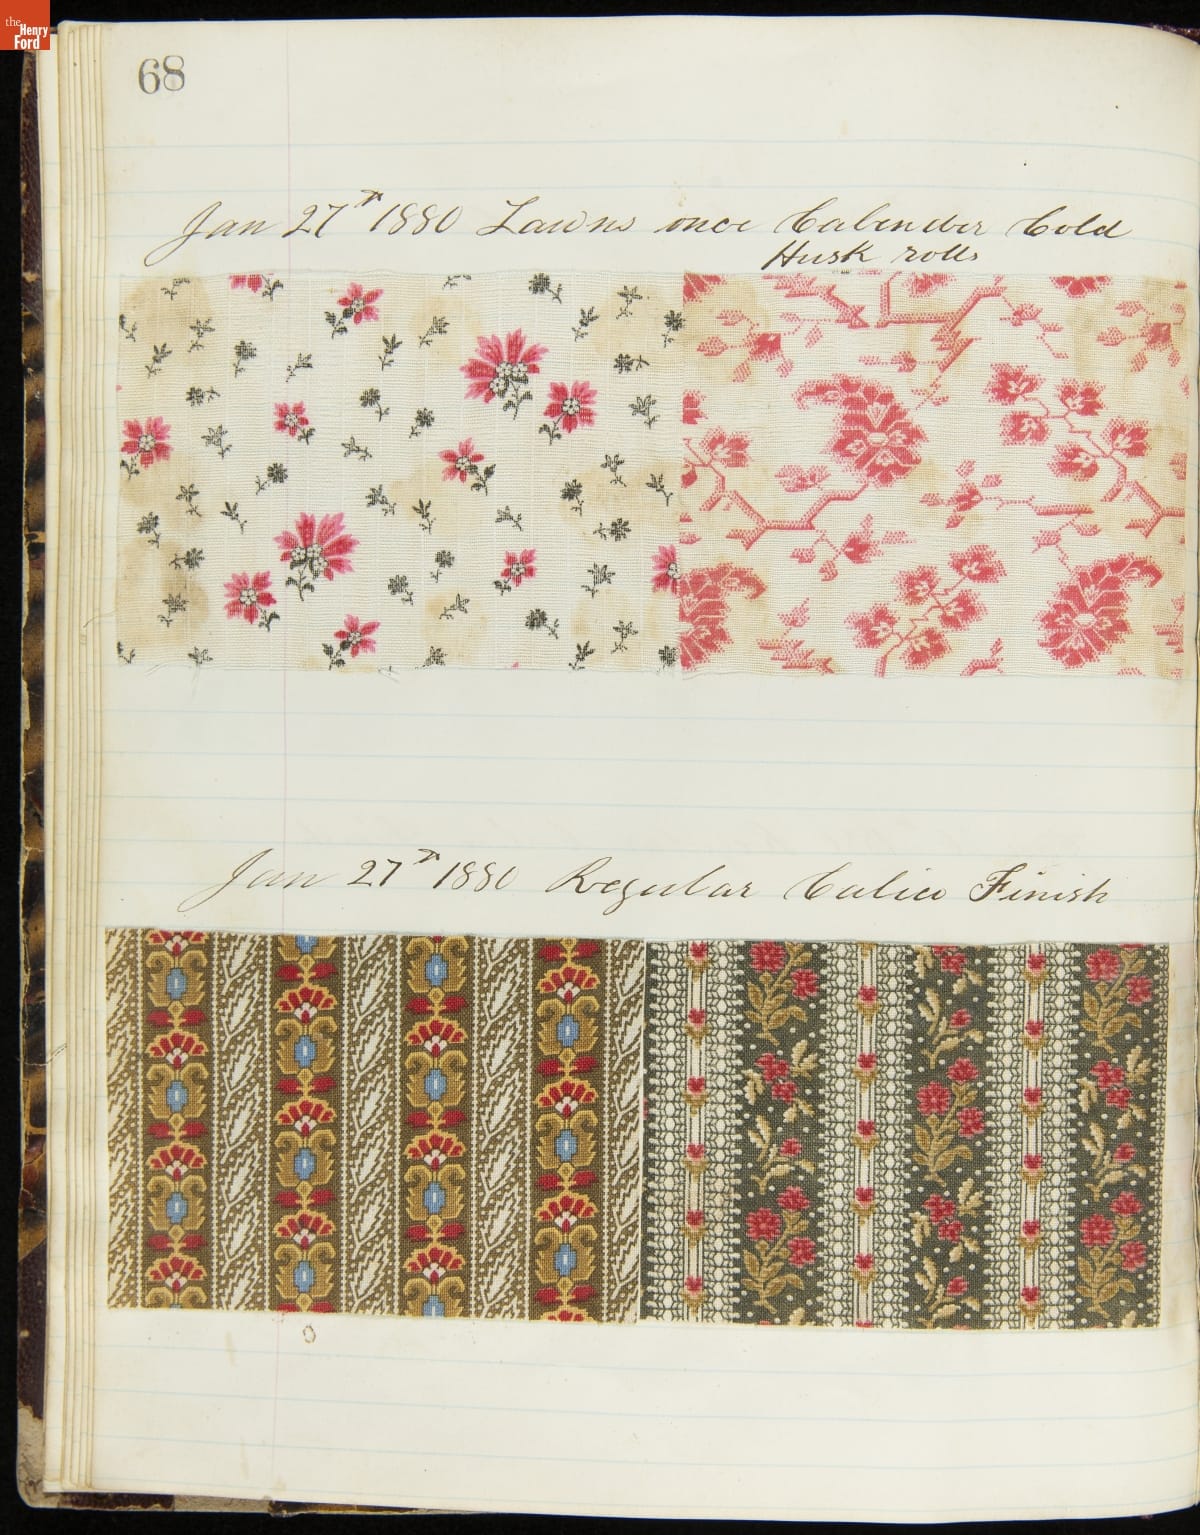 the
Henry
Ford
68
Jan 27th 1880 Lawns once Calender Cold
Husk rolls
Jan 27th 1880 Regular Calico Finish